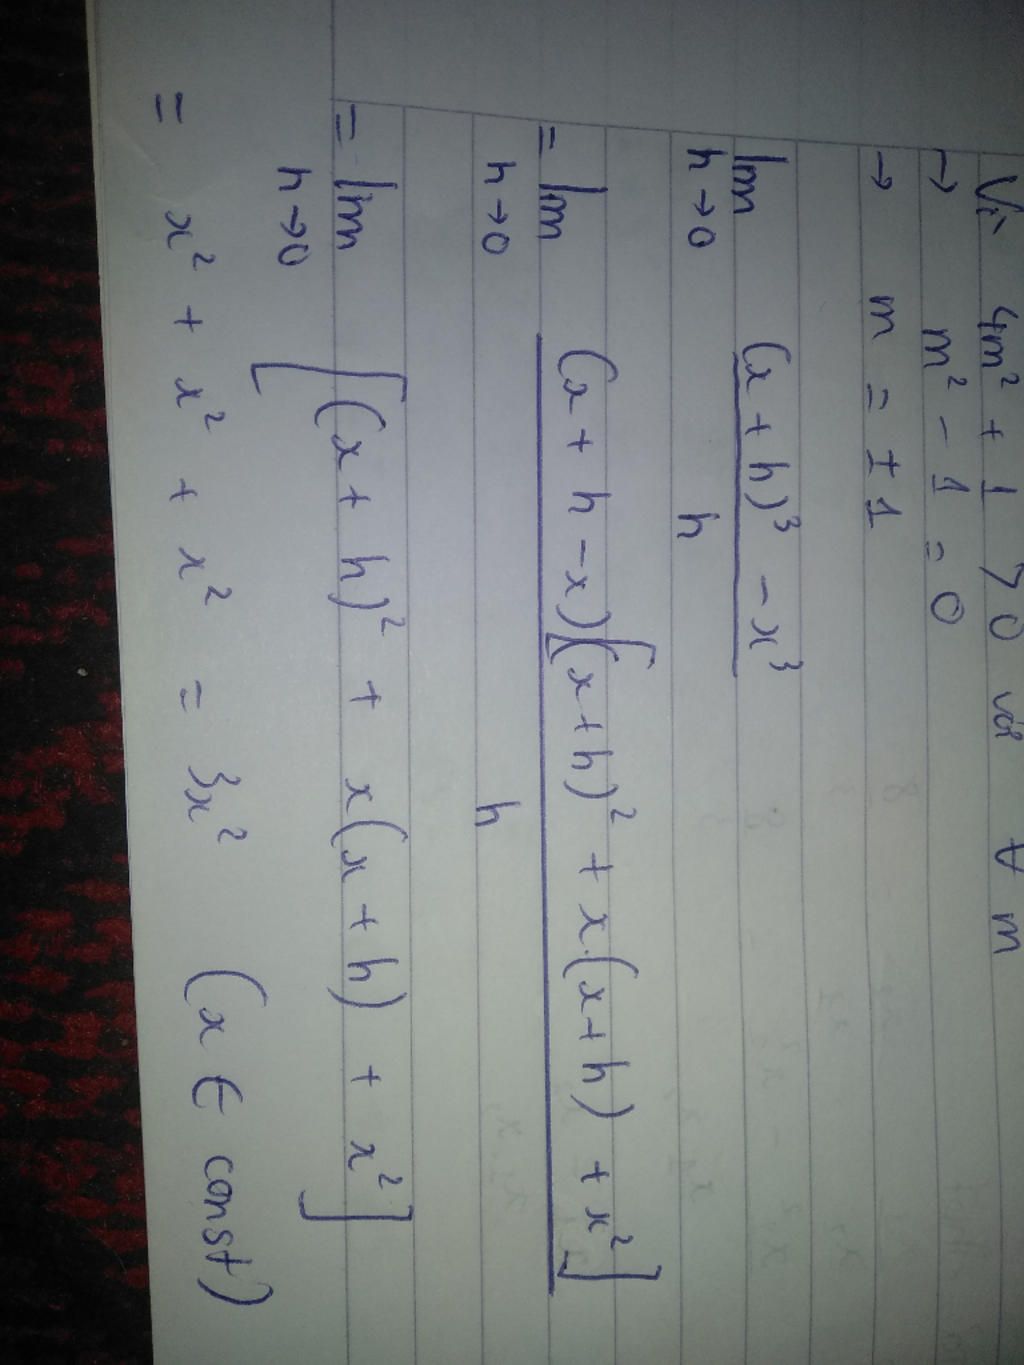 Vì 4m² + 1 > 0 với ∀ m
→ m² - 1 = 0
→ m = ± 1
lim (x + h)³ - x³
h→0 h
= lim (x + h - x)[(x + h)² + x.(x + h) + x²]
h→0 h
= lim [(x + h)² + x(x + h) + x²]
h→0
= x² + x² + x² = 3x² (x ∈ const)